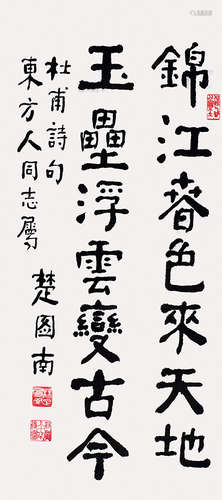 錦江春色來天地
玉壘浮雲變古今
杜甫詩句
東方人同志屬
楚圖南